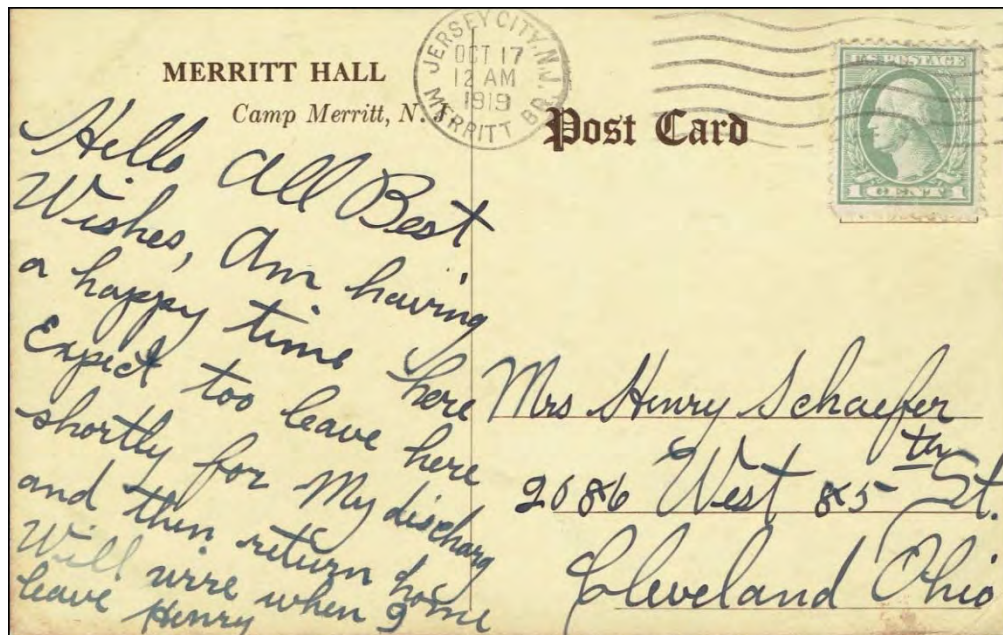 MERRITT HALL
Camp Merritt, N. J.
JERSEY CITY, N.J.
OCT 17
12 AM
1919
MERRITT BR.
Post Card
U.S. POSTAGE
1 CENT 1
Hello All Best
Wishes, Am having
a happy time here
Expect too leave here
shortly for My discharg
and then return home
Will wire when I
leave Henry
Mrs Henry Schaefer
2086 West 85th St.
Cleveland Ohio